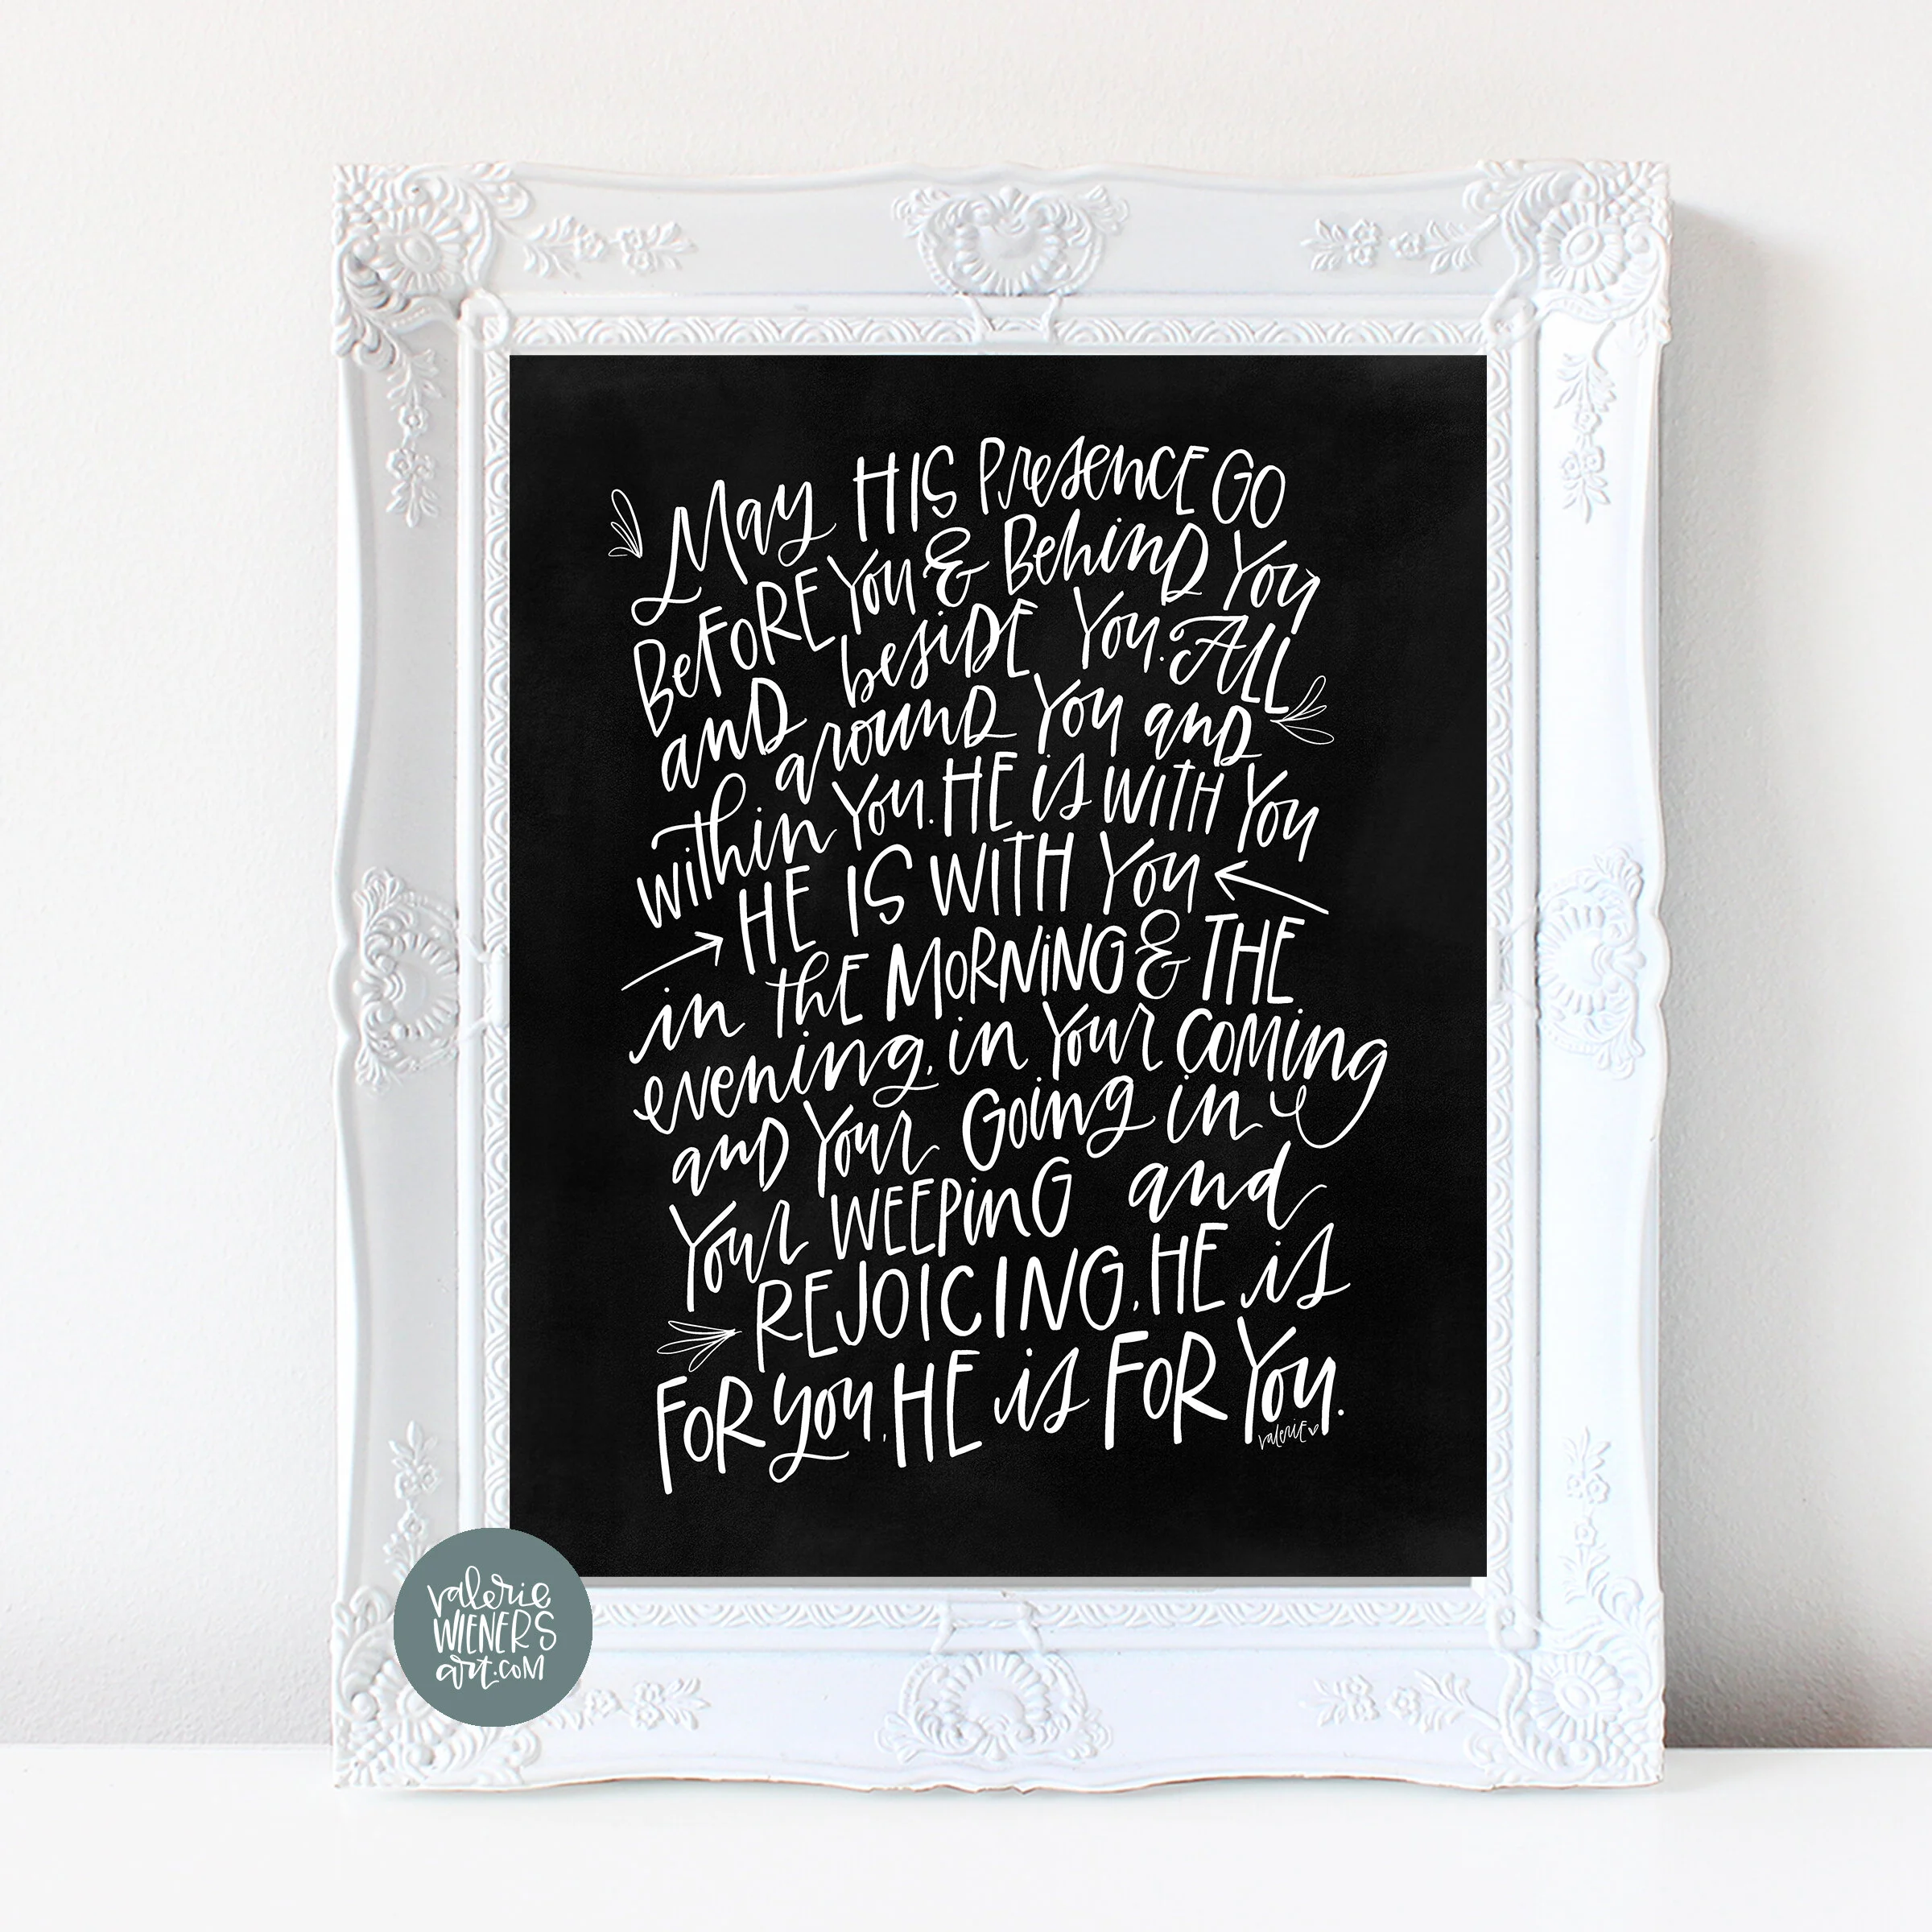 May HIS Presence GO
BeFORE You & Behind You
and beside You. All
around You and
within You. HE is WITH You
HE IS WITH You
in the MORNING & THE
evening, in Your coming
and Your Going in
Your WEEPING and
REJOICING. HE is
FOR you, HE is FOR You.
valerie
valerie
WIENERS
art.com